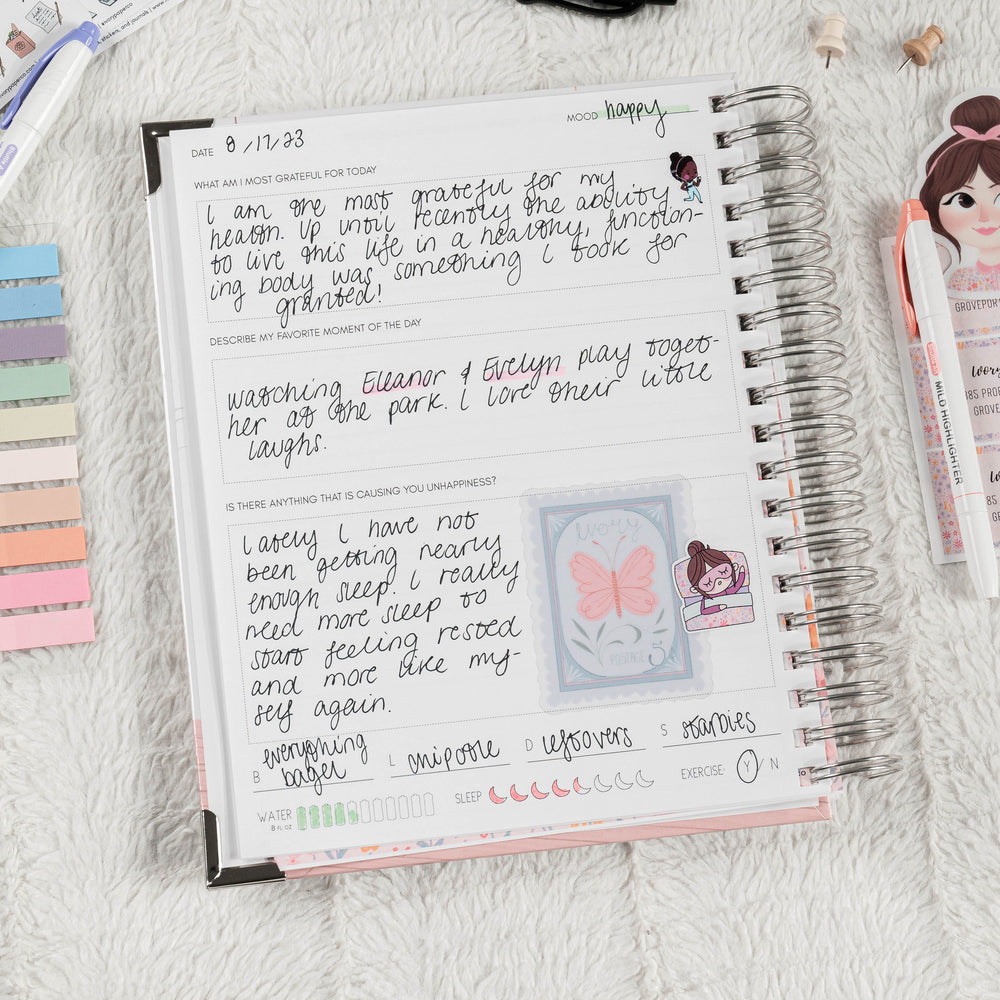 ivorypaperco.com
, stickers, and journals | www
DATE 8/17/23
MOOD happy
WHAT AM I MOST GRATEFUL FOR TODAY
I am the most grateful for my
health. Up until recently the ability
to live this life in a healthy, function-
ing body was something I took for
granted!
DESCRIBE MY FAVORITE MOMENT OF THE DAY
watching Eleanor & Evelyn play toget-
her at the park. I love their little
laughs.
IS THERE ANYTHING THAT IS CAUSING YOU UNHAPPINESS?
Lately I have not
been getting nearly
enough sleep. I really
need more sleep to
start feeling rested
and more like my-
self again.
Ivory
POSTAGE 5¢
B everything
bagel
L chipotle
D leftovers
S starbies
WATER
8 FL OZ
SLEEP
EXERCISE: Y / N
MILD HIGHLIGHTER
GROVEPOR
Ivory
GROVE